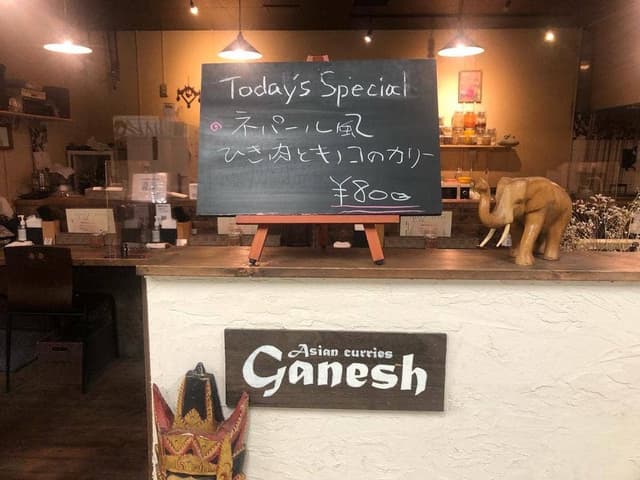 Today's Special
ネパール風
ひき肉とキノコのカリー
¥800
Asian curries
Ganesh